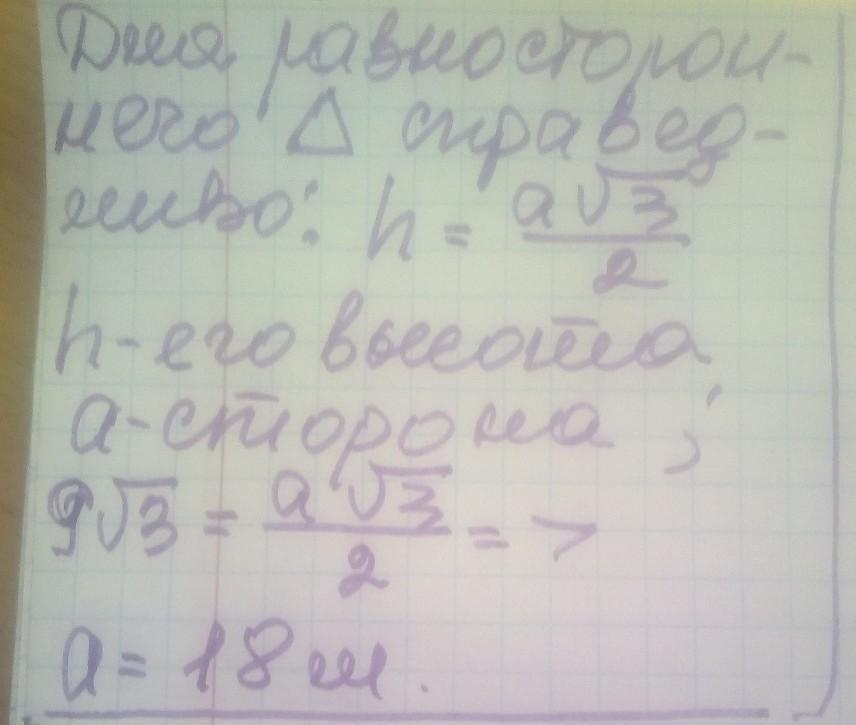 Для равносторон-
него △ справед-
ливо: h = a√3/2
h-его высота
a-сторона ;
9√3 = a√3/2 =>
a = 18 м.